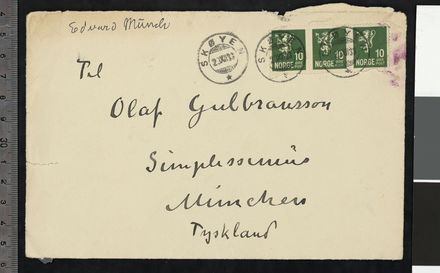 Edvard Munch
SKØYEN
SKØYEN
10 10 10
NORGE NORGE NORGE
Til
Olaf Gulbransson
Simplessimus
München
Tyskland